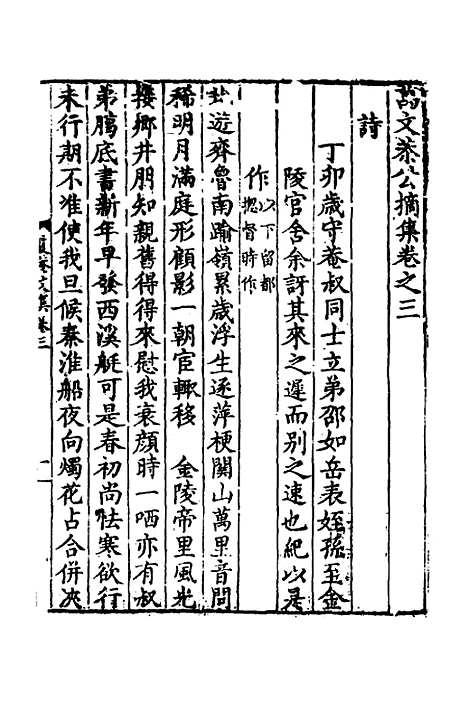 文恭公摘集卷之三
詩
丁卯歲守菴叔同士立弟邵如岳表姪孫至金
陵官舍余訝其來之遲而别之速也紀以是
作以下留都揔督時作
北遊齊魯南踰嶺累歲浮生逐萍梗關山萬里音問
稀明月滿庭形顧影一朝宦轍移 金陵帝里風光
接鄉井朋知親舊得得來慰我衰顏時一哂亦有叔
弟鴈底書新年早發西溪艇可是春初尚怯寒欲行
未行期不准使我旦候秦淮船夜向燭花占合併决
文集卷三
一